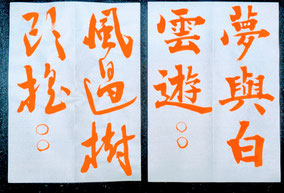 夢與白
雲遊○○
風過樹
頭搖○○